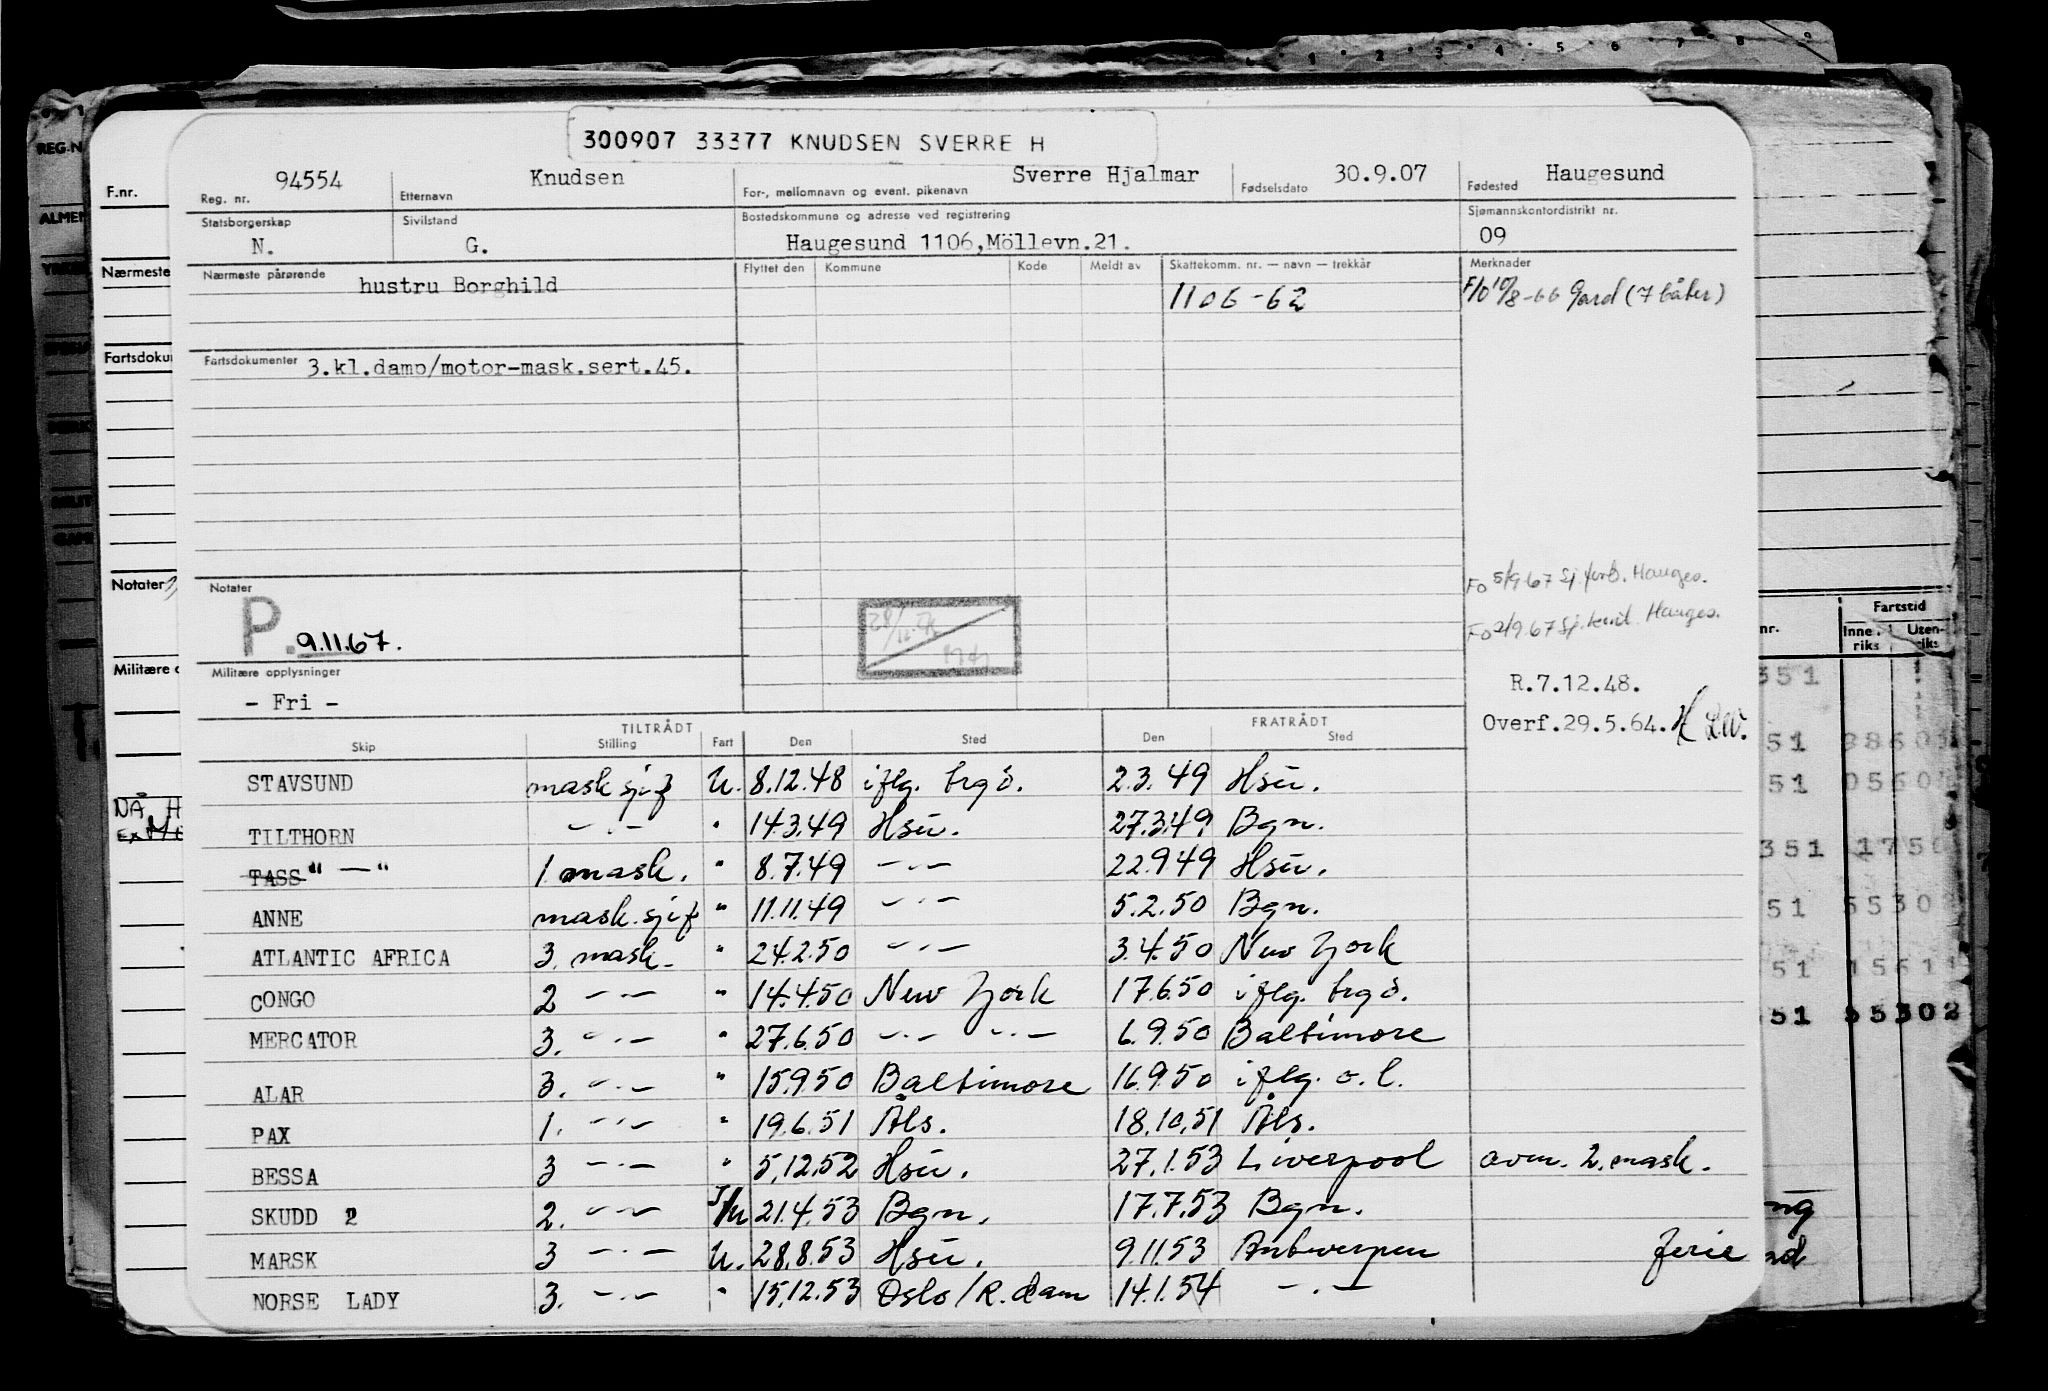 300907 33377 KNUDSEN SVERRE H
Reg. nr. 94554 Etternavn Knudsen For-, mellomnavn og event. pikenavn Sverre Hjalmar Fødselsdato 30.9.07 Fødested Haugesund
Statsborgerskap Sivilstand Bostedskommune og adresse ved registrering Sjømannskontordistrikt nr.
N. G. Haugesund 1106,Möllevn.21. 09
Nærmeste pårørende hustru Borghild Flyttet den Kommune Kode Meldt av Skattekomm. nr. — navn — trekkår Merknader
1106-62 F/O 10/8-66 Gard (7 båter)
Fartsdokumenter 3.kl.damp/motor-mask.sert.45.
Notater
FO 5/9 67 Sj. forb. Hauges.
P. 9.11.67.
FO 2/9 67 Sj. kont. Hauges.
Militære opplysninger R.7.12.48.
- Fri - Overf.29.5.64. H
TILTRÅDT FRATRÅDT
Skip Stilling Fart Den Sted Den Sted
STAVSUND mask sjef U. 8.12.48 iflg. brg ö. 2.3.49 Hsu.
TILTHORN —"— " 14.3.49 Hsu. 27.3.49 Bgn.
TASS " — " 1 mask. " 8.7.49 —"— 22.9.49 Hsu.
ANNE mask. sjef " 11.11.49 —"— 5.2.50 Bgn.
ATLANTIC AFRICA 3. mask. " 24.2.50 —"— 3.4.50 New York
CONGO 2 —"— " 14.4.50 New York 17.6.50 iflg. brg ö.
MERCATOR 3. —"— " 27.6.50 —"— —"— 6.9.50 Baltimore
ALAR 3. —"— " 15.9.50 Baltimore 16.9.50 iflg. o. l.
PAX 1. —"— " 19.6.51 Åls. 18.10.51 Åls.
BESSA 3 —"— " 5.12.52 Hsu. 27.1.53 Liverpool avm. 2. mask.
SKUDD 2 2. —"— I/U 21.4.53 Bgn. 17.7.53 Bgn.
MARSK 3 —"— U. 28.8.53 Hsu. 9.11.53 Antwerpen ferie
NORSE LADY 3. —"— " 15.12.53 Oslo/R.dam 14.1.54 —"—
F.nr.
Nærmeste
Fartsdoku
Notater
Militære o
nr. Fartstid
Innenriks Utenriks
351
51
51 0560
351 1750
51 5530
51 15611
51 55302
REG.N
ALMEN
1 2 3 4 5 6 7 8 9